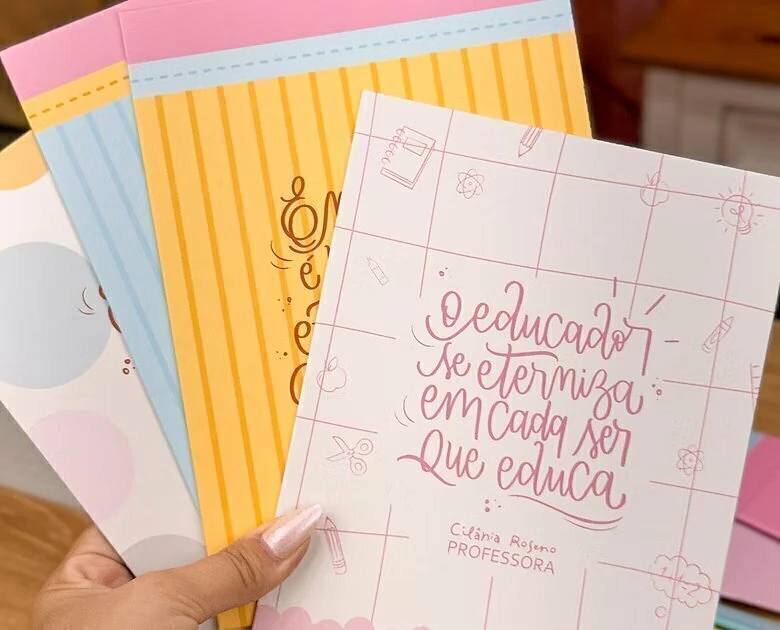 O educador
se eterniza
em cada ser
que educa
Cilânia Roseno
PROFESSORA
é
1+2